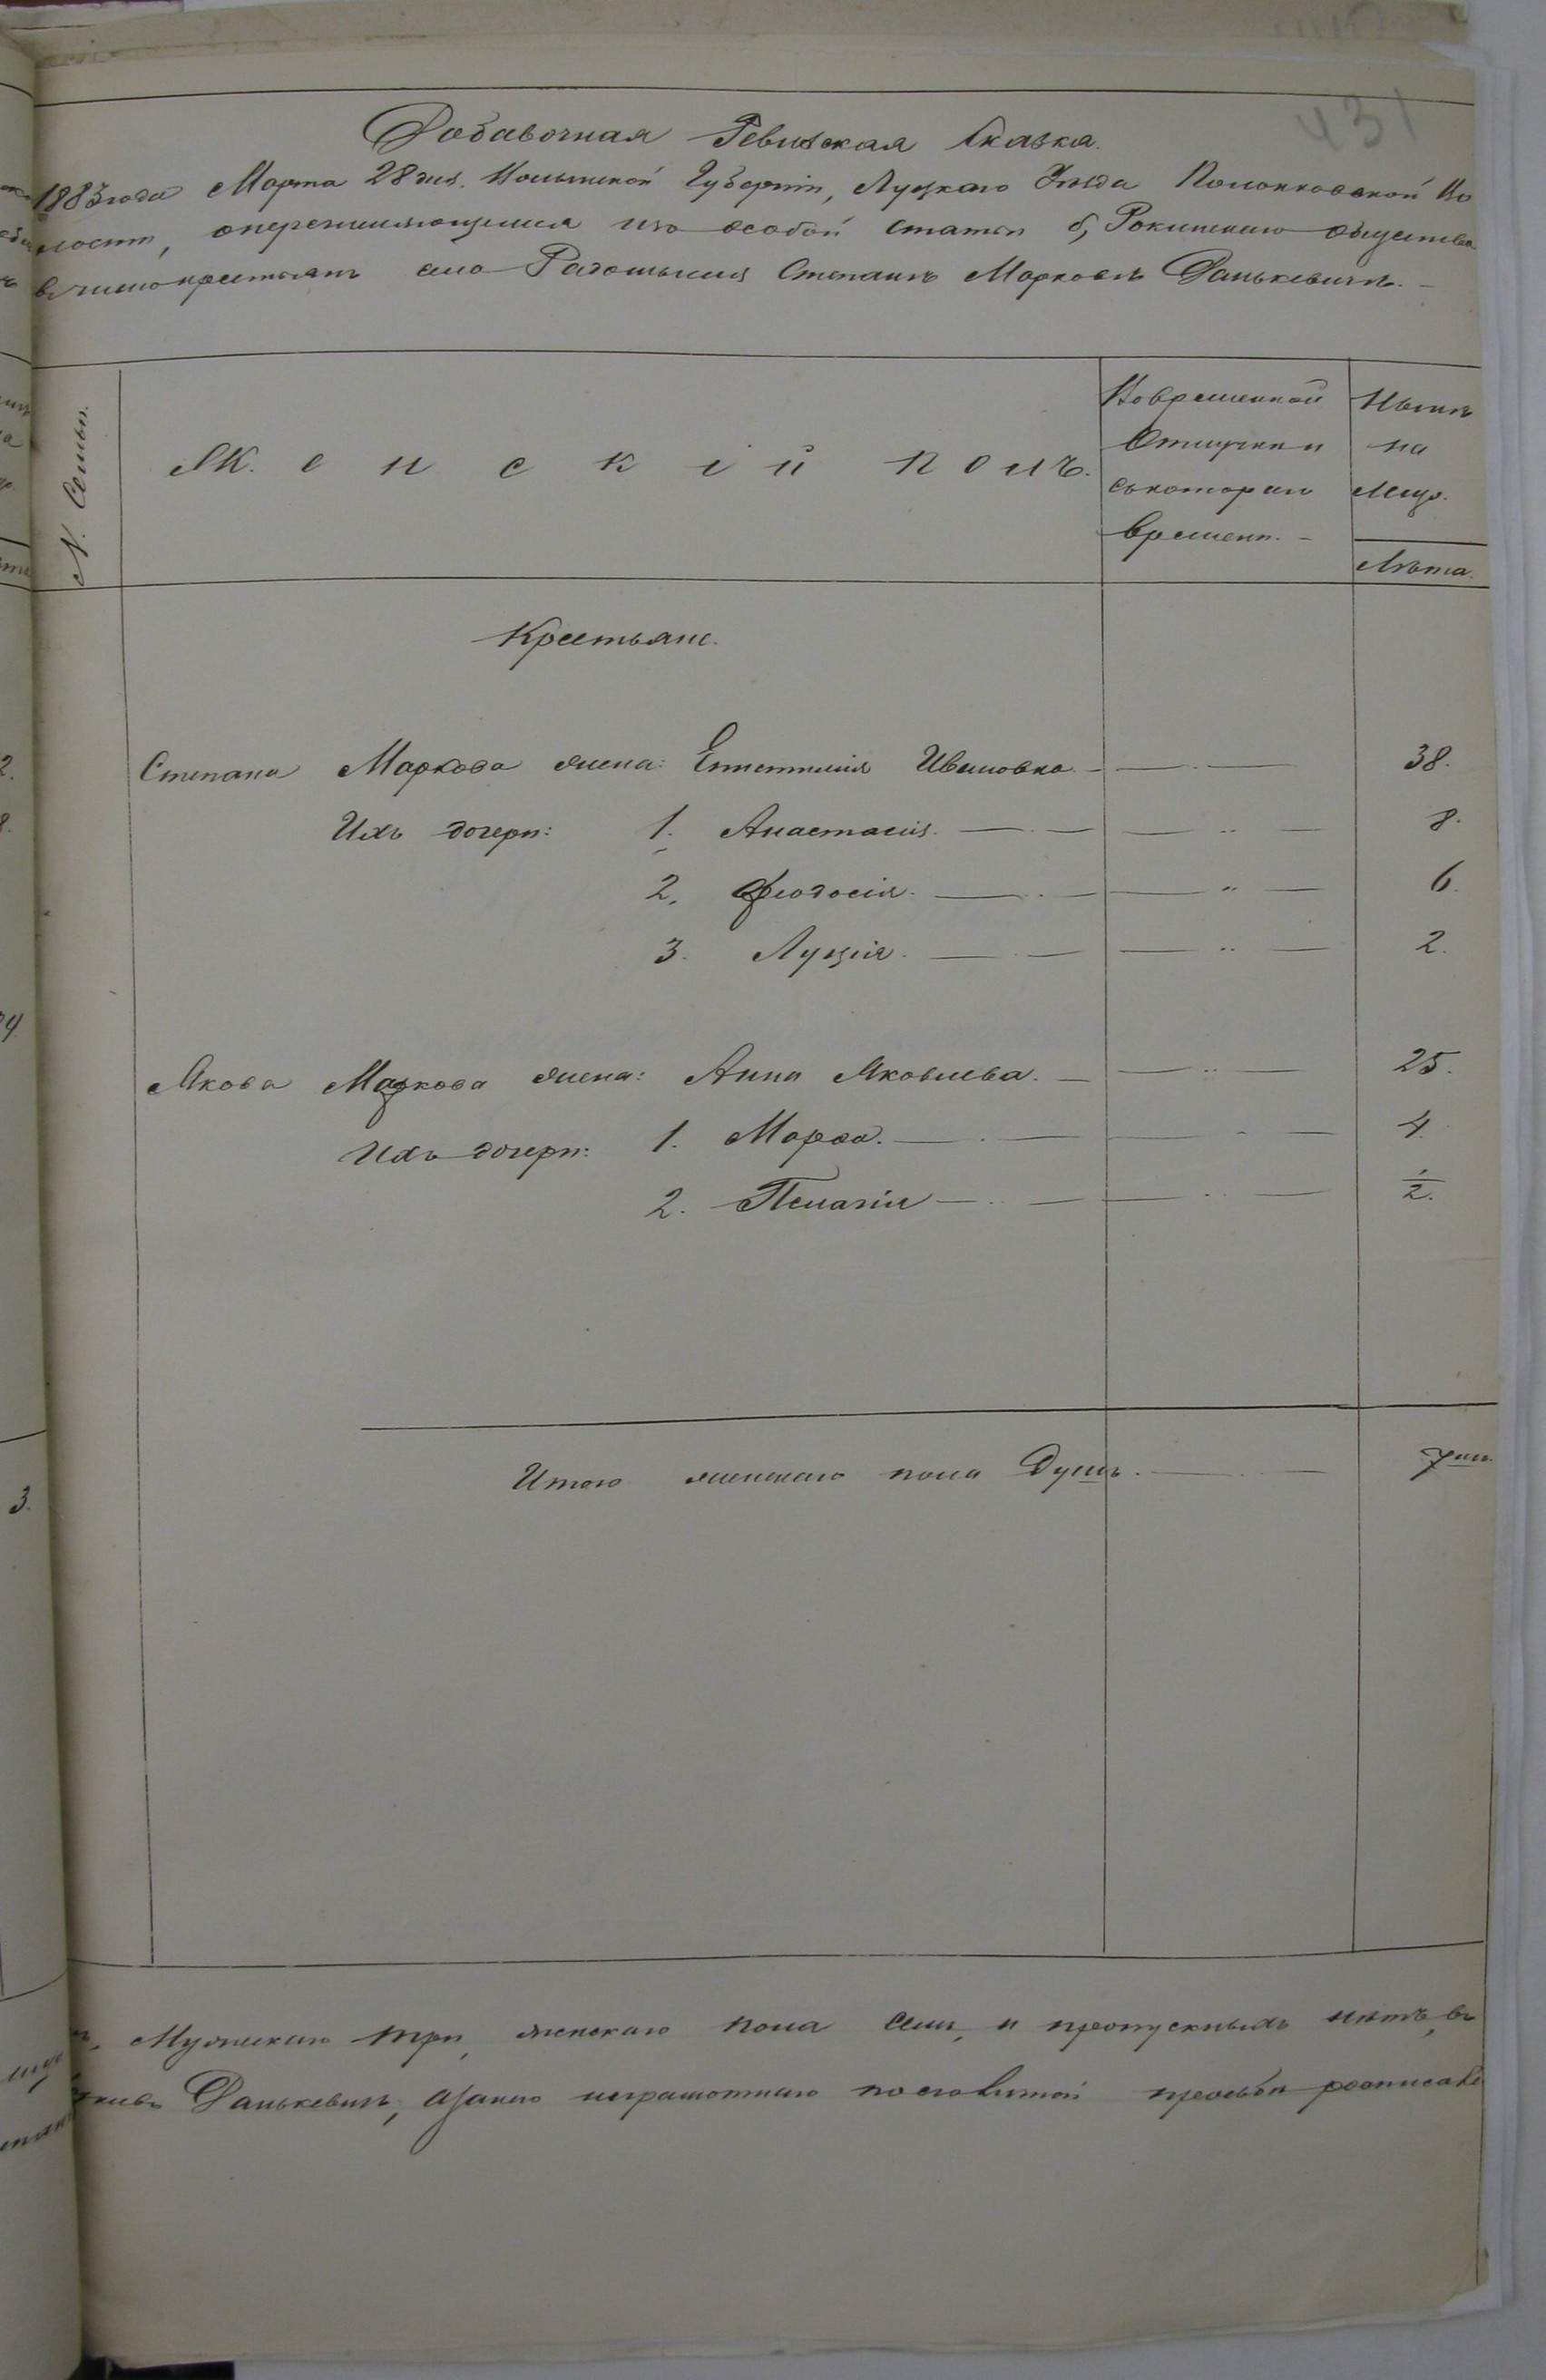 431
Добавочная Ревизская Сказка.
1883 года Марта 28 дня. Волынской Губерніи, Луцкаго Уѣзда Полонковской Во
лости, о перечисляющемся изъ особой статьи б, Рокинскаго общества
въ число крестьянъ села Радошина Степанѣ Марковѣ Данькевичѣ. —
N. Семьи.
Женскій полъ.
Во временной
Отлучкѣ
съ котораго
времени. —
Нынѣ
на
лицо.
Лѣта.
Крестьяне.
Степана Маркова жена: Ивановна. 38.
Ихъ дочери: 1. Анастасія. 8.
2. Феодосія. 6.
3. Луція. 2.
Якова Маркова жена: Анна Яковлева. 25.
Ихъ дочери: 1. Марѳа. 4.
2. Пелагія 1/2.
Итого женскаго пола Душъ. 7
Мужескаго три, женскаго пола семь, и пропускныхъ нѣтъ, въ
Данькевичъ, а за него неграмотнаго по его личной просьбѣ росписался